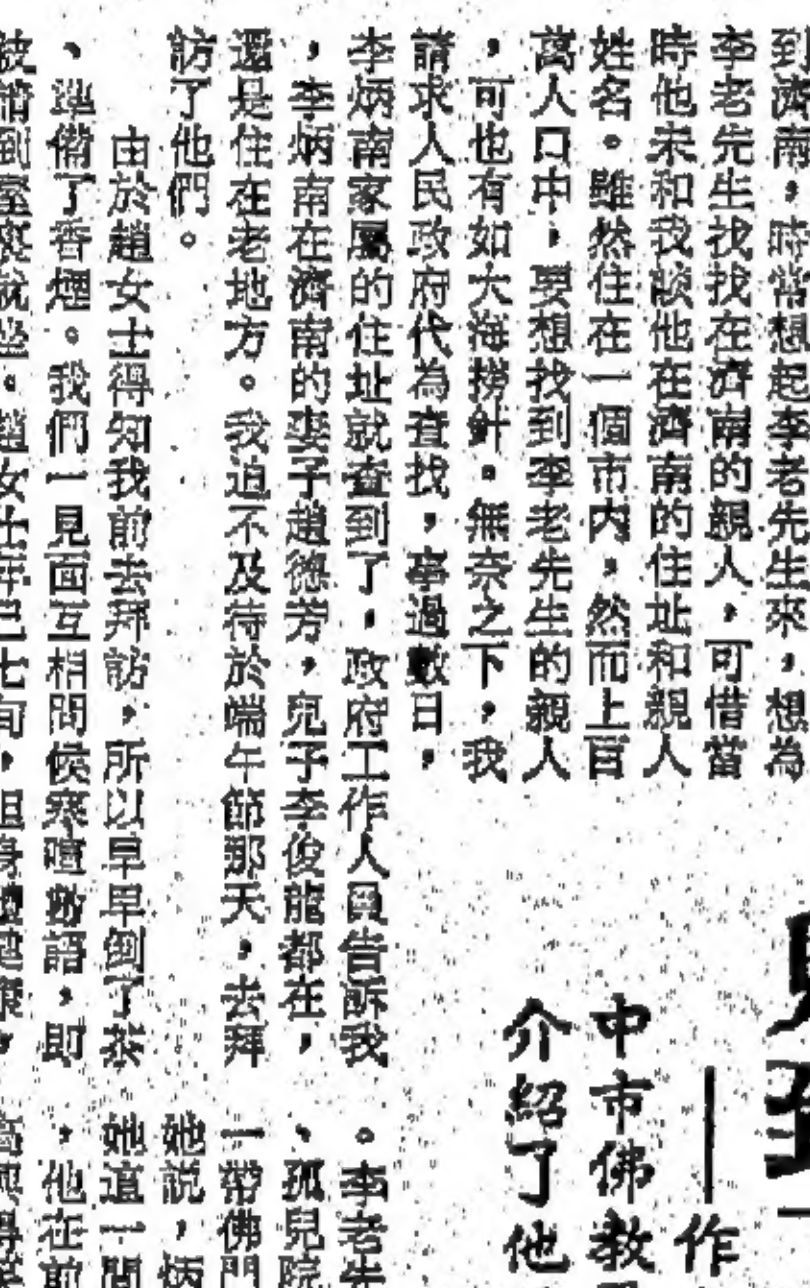 到濟南，時常想起李老先生來，想為
李老先生找找在濟南的親人，可惜當
時他未和我談他在濟南的住址和親人
姓名。雖然住在一個市內，然而上百
萬人口中，要想找到李老先生的親人
，可也有如大海撈針。無奈之下，我
請求人民政府代為查找，事過數日，
李炳南家屬的住址就查到了，政府工作人員告訴我
，李炳南在濟南的妻子趙德芳，兒子李俊龍都在，
還是住在老地方。我迫不及待於端午節那天，去拜
訪了他們。
由於趙女士得知我前去拜訪，所以早早倒了茶
、準備了香煙。我們一見面互相問候寒喧數語，即
被請到室裏就坐。趙女士年已七旬，但身體健康，
作
中市佛教
介紹了他
。李老先
、孤兒院
一帶佛門
她説，炳
她這一間
，他在前
高興得